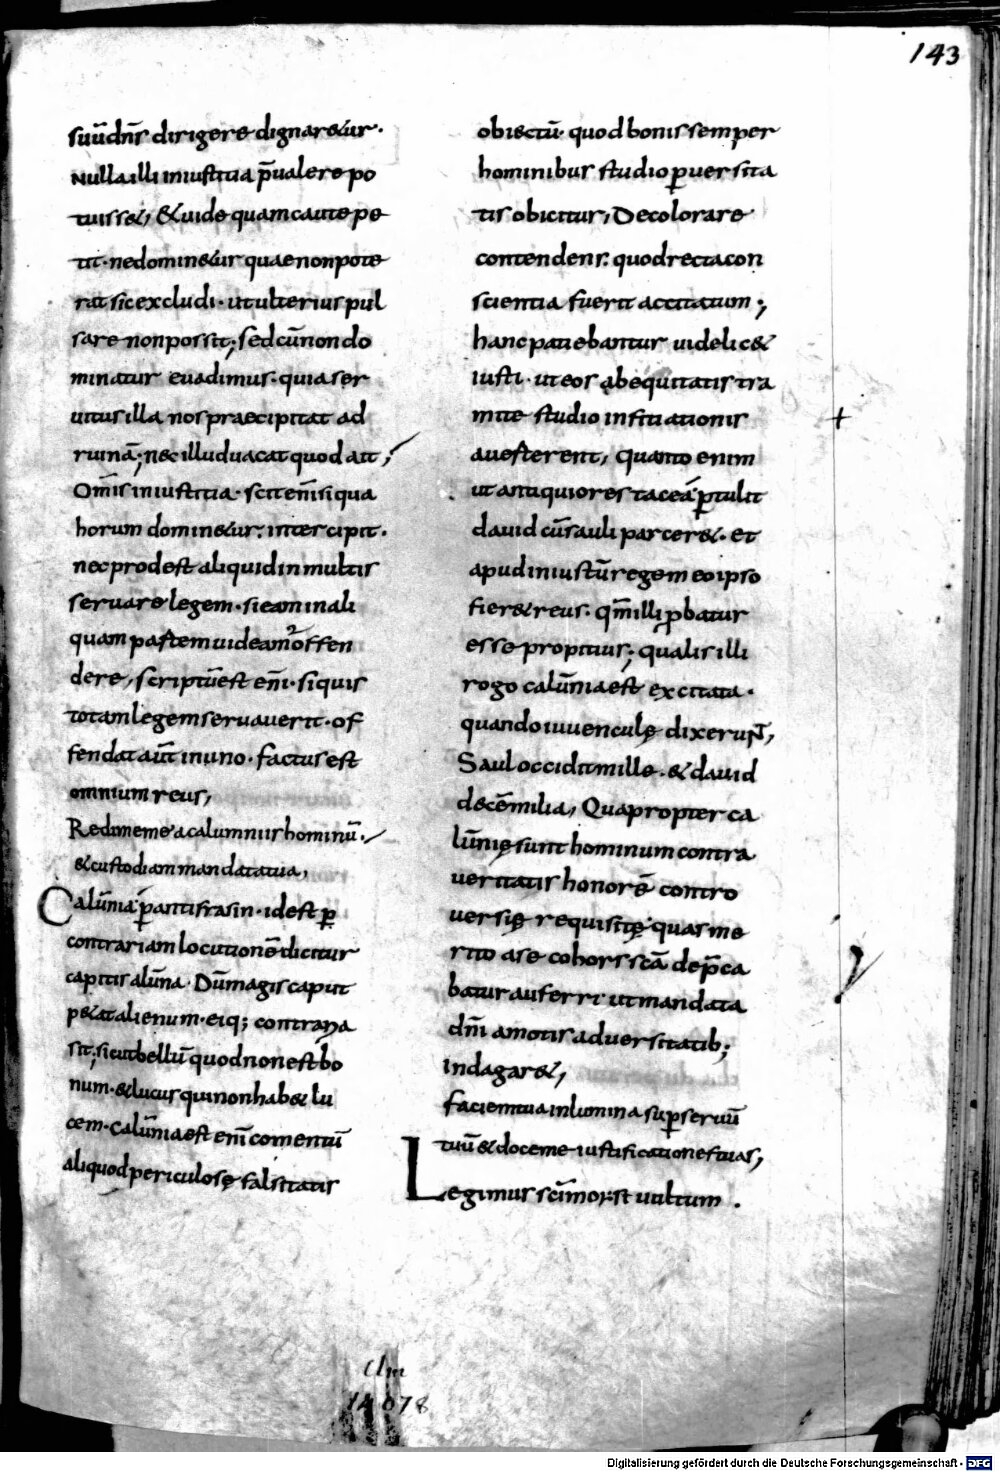 143
suū dn̄s dirigere dignaretur·
Nulla illi iniustitia p̄ualere po
tuisset, & uide quam caute pe
tit· ne dominetur quae non pote
rat sic excludi· ut ulterius pul
sare non possit; sed cū non do
minatur euadimus· quia ser
uitus illa nos praecipitat ad
ruinā; nec illud uacat quod ait;
Om̄is iniustitia· scit enī si qua
horum dominetur· intercipit·
nec prodest aliquid in multis
seruare legem· si eam in ali
quam partem uideamur offen
dere, scriptū est enī· si quis
totam legem seruauerit· of
fendat aūt in uno· factus est
omnium reus,
Redime me a calumniis hominū·
& custodiam mandata tua,
Calūnia p̄ antifrasin· id est ꝑ
contrariam locutionē dicitur
capitis alūna· Dū magis caput
petat alienum· eiq; contraria
sit; sicut bellū quod non est bo
num· & lucus qui non habet lu
cem· Calūnia est enī comentū
aliquod periculosę falsitatis
obiectū quod bonis semper
hominibus studio ꝑuersita
tis obicitur, Decolorare
contendens· quod recta con
scientia fuerit accitatum;
hanc patiebantur uidelicet
iusti· ut eos ab equitatis tra
mite studio infituationis
auesterent, Quanto enim
ut antiquiores taceā ꝑtulit
dauid cū sauli parceret· et
apud iniustū regem eo ipso
fieret reus· qm̄ illi ꝓbatur
esse propitius; qualis illi
rogo calūnia est excitata·
quando iuuenculę dixerunt,
Saul occidit mille· & dauid
decē milia, Quapropter ca
lūnię sunt hominum contra
ueritatis honorē contro
uersię requisitę quas me
rito a se cohors scā dep̄ca
batur auferri ut mandata
dn̄i amotis aduersitatib;
indagaret,
faciem tua inlumina sup̄ seruū
tuū & doce me iustificationes tuas,
Legimus scm̄ morst uultum·
Clm
14078
Digitalisierung gefördert durch die Deutsche Forschungsgemeinschaft - DFG